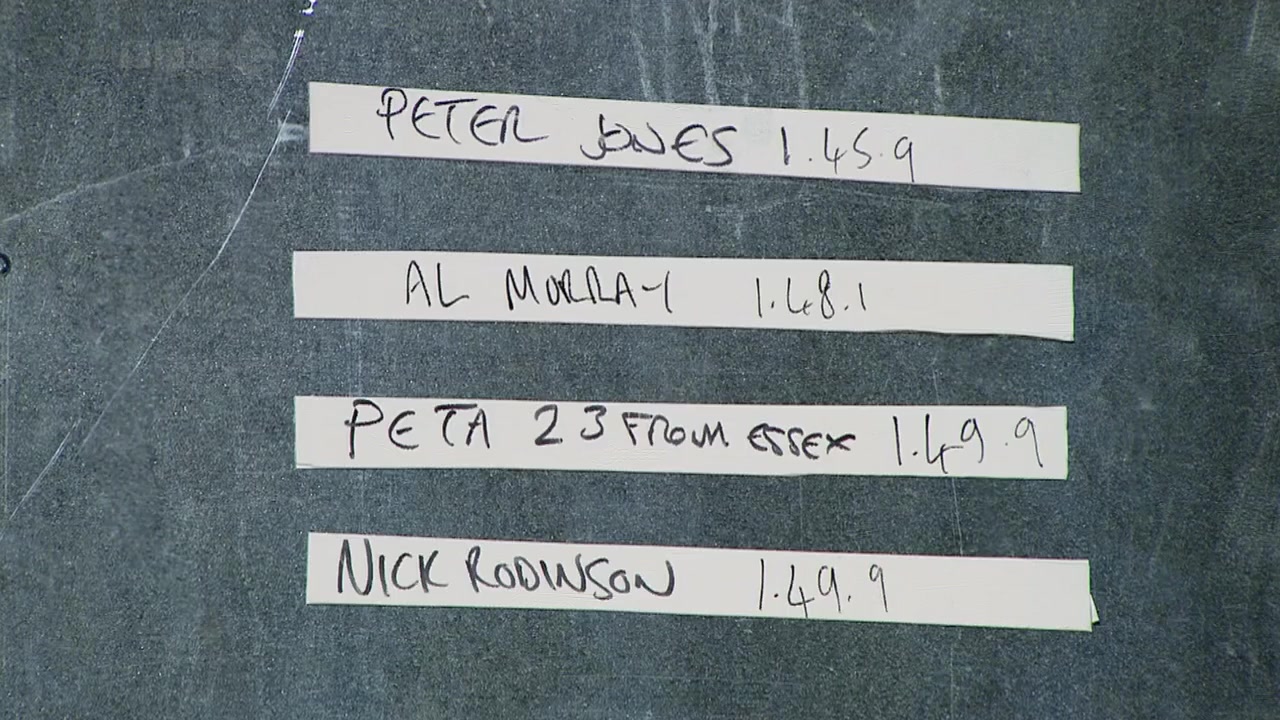 PETER JONES 1.45.9
AL MURRAY 1.48.1
PETA 23 FROM ESSEX 1.49.9
NICK ROBINSON 1.49.9